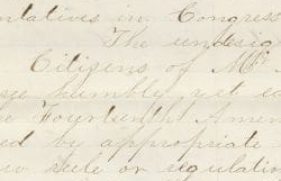 ntatives in Congress
The undesig
Citizens of
humbly, yet ea
Fourteenth Amen
ed by appropriate
rule or regulatin